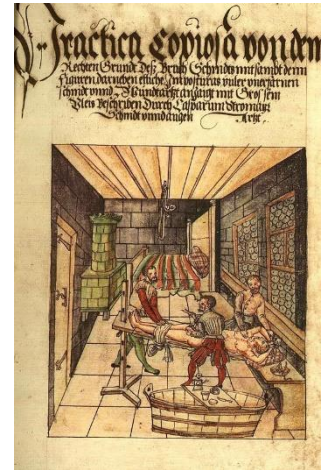 Practica Copiosa von dem
Rechten Grundt Deß Bruch Schnidts mit sampt denn
Figuren darneben etliche
Schnidt vnnd Wundartzt anlangt mit Grossem
Vleis beschriben Durch Casparum Stromayr
Schnidt vnnd augen Artzt.